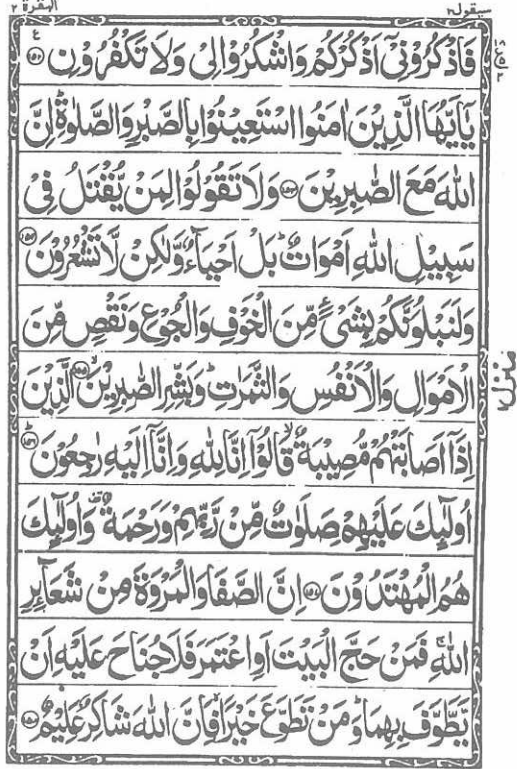 سيقول ٢
البقرة ٢
فَاذْكُرُوْنِيْٓ اَذْكُرْكُمْ وَاشْكُرُوْا لِيْ وَلَا تَكْفُرُوْنِ ۝١٥٢ ع
يٰٓاَيُّهَا الَّذِيْنَ اٰمَنُوا اسْتَعِيْنُوْا بِالصَّبْرِ وَالصَّلٰوةِ ؕ اِنَّ
اللّٰهَ مَعَ الصّٰبِرِيْنَ ۝١٥٣ وَلَا تَقُوْلُوْا لِمَنْ يُّقْتَلُ فِيْ
سَبِيْلِ اللّٰهِ اَمْوَاتٌ ؕ بَلْ اَحْيَآءٌ وَّلٰكِنْ لَّا تَشْعُرُوْنَ ۝١٥٤
وَلَنَبْلُوَنَّكُمْ بِشَيْءٍ مِّنَ الْخَوْفِ وَالْجُوْعِ وَنَقْصٍ مِّنَ
الْاَمْوَالِ وَالْاَنْفُسِ وَالثَّمَرٰتِ ؕ وَبَشِّرِ الصّٰبِرِيْنَ ۝١٥٥ الَّذِيْنَ
اِذَآ اَصَابَتْهُمْ مُّصِيْبَةٌ ۙ قَالُوْٓا اِنَّا لِلّٰهِ وَاِنَّآ اِلَيْهِ رٰجِعُوْنَ ۝١٥٦
اُولٰٓئِكَ عَلَيْهِمْ صَلَوٰتٌ مِّنْ رَّبِّهِمْ وَرَحْمَةٌ ۟ وَاُولٰٓئِكَ
هُمُ الْمُهْتَدُوْنَ ۝١٥٧ اِنَّ الصَّفَا وَالْمَرْوَةَ مِنْ شَعَآئِرِ
اللّٰهِ ۚ فَمَنْ حَجَّ الْبَيْتَ اَوِ اعْتَمَرَ فَلَا جُنَاحَ عَلَيْهِ اَنْ
يَّطَّوَّفَ بِهِمَا ؕ وَمَنْ تَطَوَّعَ خَيْرًا ۙ فَاِنَّ اللّٰهَ شَاكِرٌ عَلِيْمٌ ۝١٥٨
منزل ١